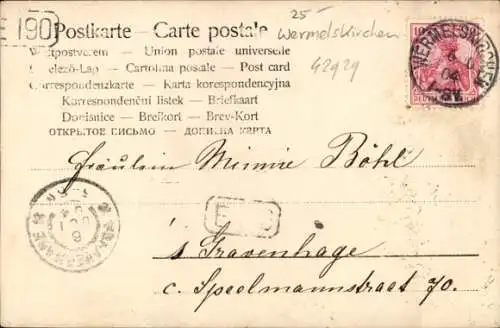 E 190
25-
Postkarte — Carte postale
Wermelskirchen
Weltpostverein — Union postale universelle
42929
Levelező-Lap — Cartolina postale — Post card
Correspondenzkarte — Karta korespondencyjna
Korespondenční listek — Briefkaart
Dopisnice — Brefkort — Brev-Kort
ОТКРЫТОЕ ПИСЬМО — ДОПИСНА КАРТА
WERMELSKIRCHEN
10
Fräulein Minnie Böhl
'SGRAVENHAGE
s Gravenhage
c. Speelmannstraet 70.